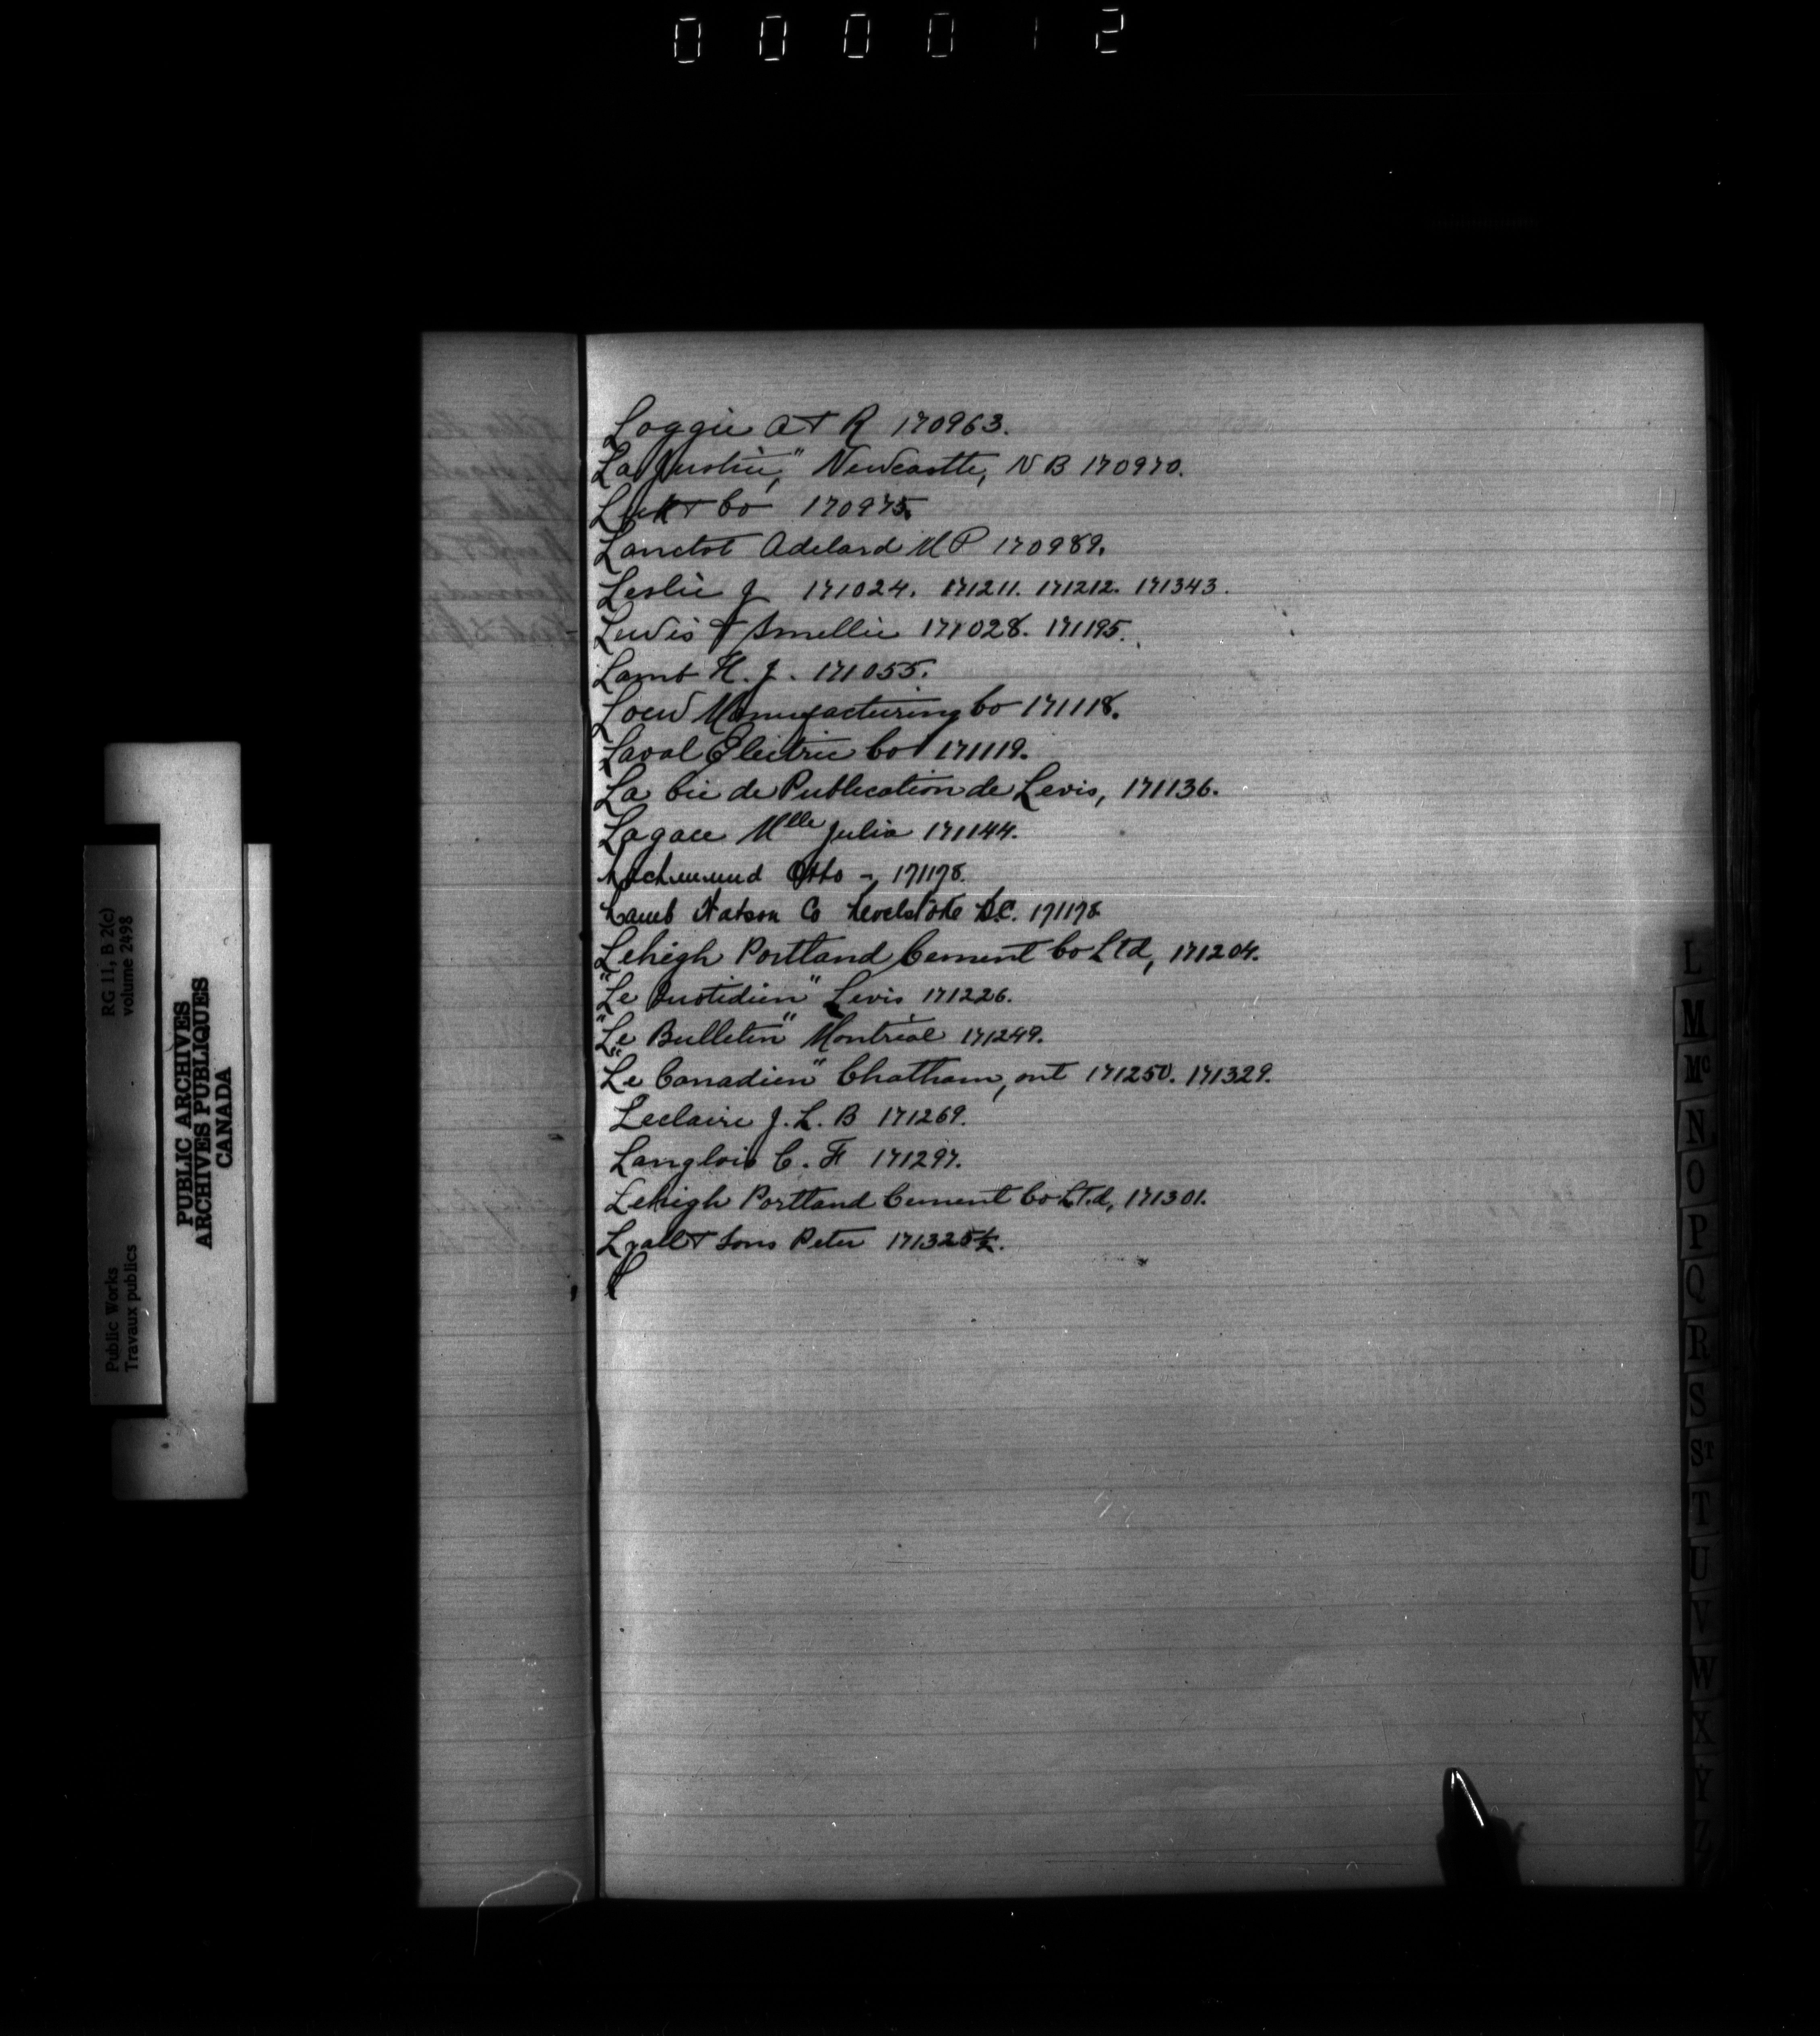 000012
Loggie A & R 170963.
La Justice," Newcastle, N B 170970.
& Co 170975.
Lanctot Adelard M P 170989.
Leslie J 171024. 171211. 171212. 171343.
Lewis & Smellie 171028. 171195.
Lamb H. J. 171055.
Loew Manufacturing Co 171118.
Laval Electric Co 171119.
La Cie de Publication de Levis, 171136.
Lagace Mlle Julia 171144.
Lachmund Otto - 171178.
Lamb Watson Co Revelstoke B.C. 171178
Lehigh Portland Cement Co Ltd, 171204.
"Le Quotidien" Levis 171226.
"Le Bulletin" Montréal 171249.
"Le Canadien" Chatham, ont 171250. 171329.
Leclaire J. L. B 171269.
Langlois C. F 171297.
Lehigh Portland Cement Co Ltd, 171301.
Lyall & Sons Peter 171325½.
L
RG 11, B 2(c)
volume 2498
PUBLIC ARCHIVES
ARCHIVES PUBLIQUES
CANADA
Public Works
Travaux publics
L
M
Mc
N
O
P
Q
R
S
ST
T
U
V
W
X
Y
Z